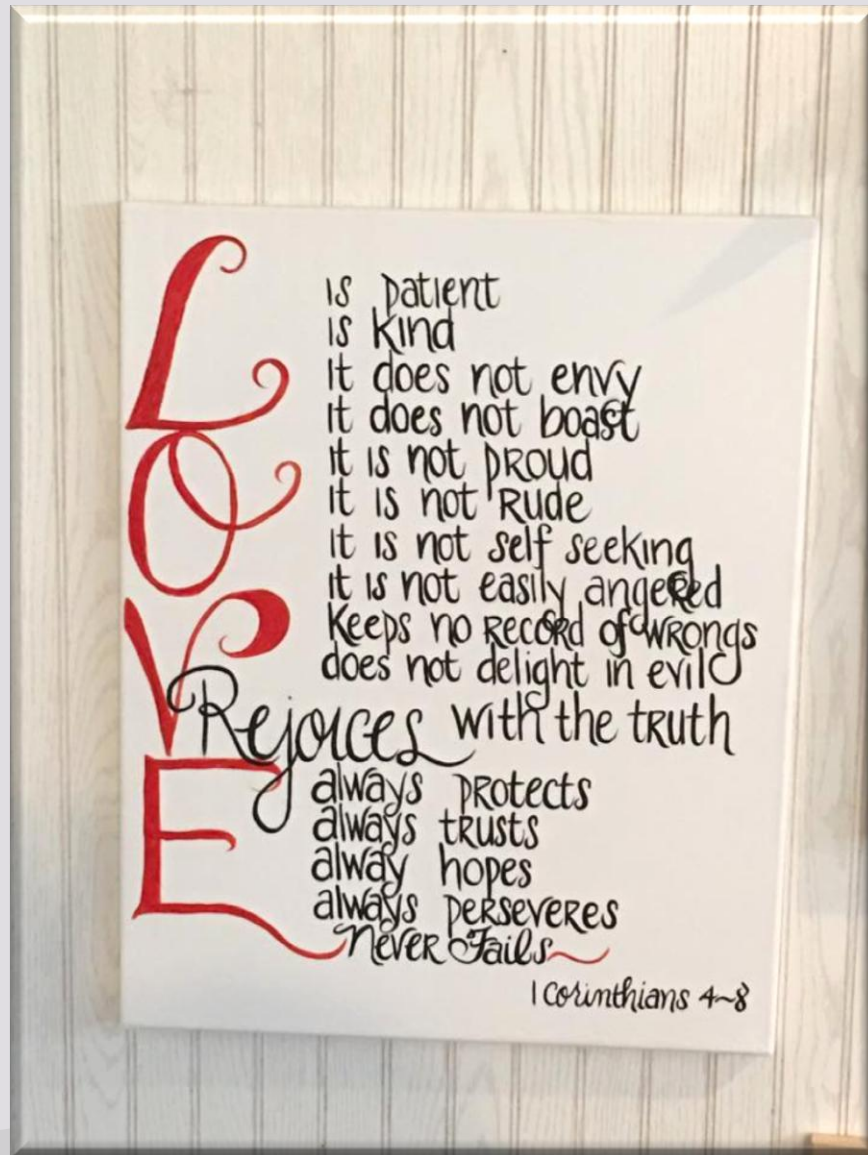 LOVE
is patient
is kind
it does not envy
it does not boast
it is not proud
it is not Rude
it is not self seeking
it is not easily angered
Keeps no Record of wrongs
does not delight in evil
Rejoices with the truth
always protects
always trusts
alway hopes
always perseveres
Never Fails
1 Corinthians 4~8